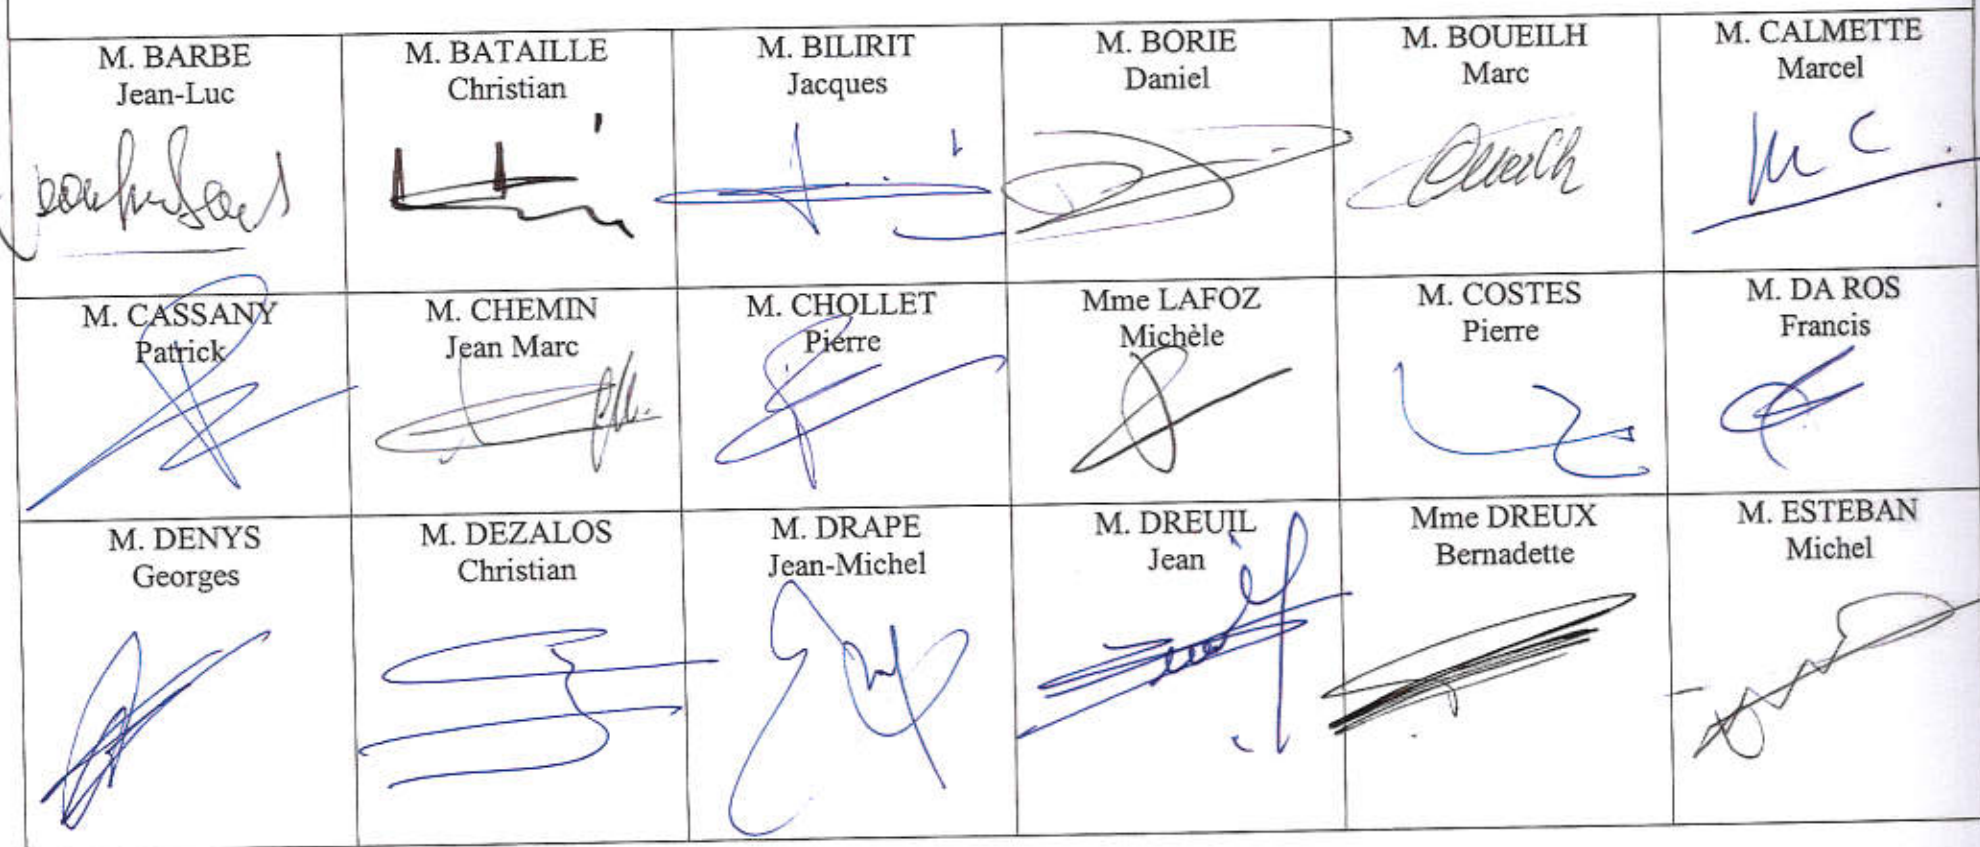 M. BARBE
Jean-Luc
M. BATAILLE
Christian
M. BILIRIT
Jacques
M. BORIE
Daniel
M. BOUEILH
Marc
M. CALMETTE
Marcel
M. CASSANY
Patrick
M. CHEMIN
Jean Marc
M. CHOLLET
Pierre
Mme LAFOZ
Michèle
M. COSTES
Pierre
M. DA ROS
Francis
M. DENYS
Georges
M. DEZALOS
Christian
M. DRAPE
Jean-Michel
M. DREUIL
Jean
Mme DREUX
Bernadette
M. ESTEBAN
Michel